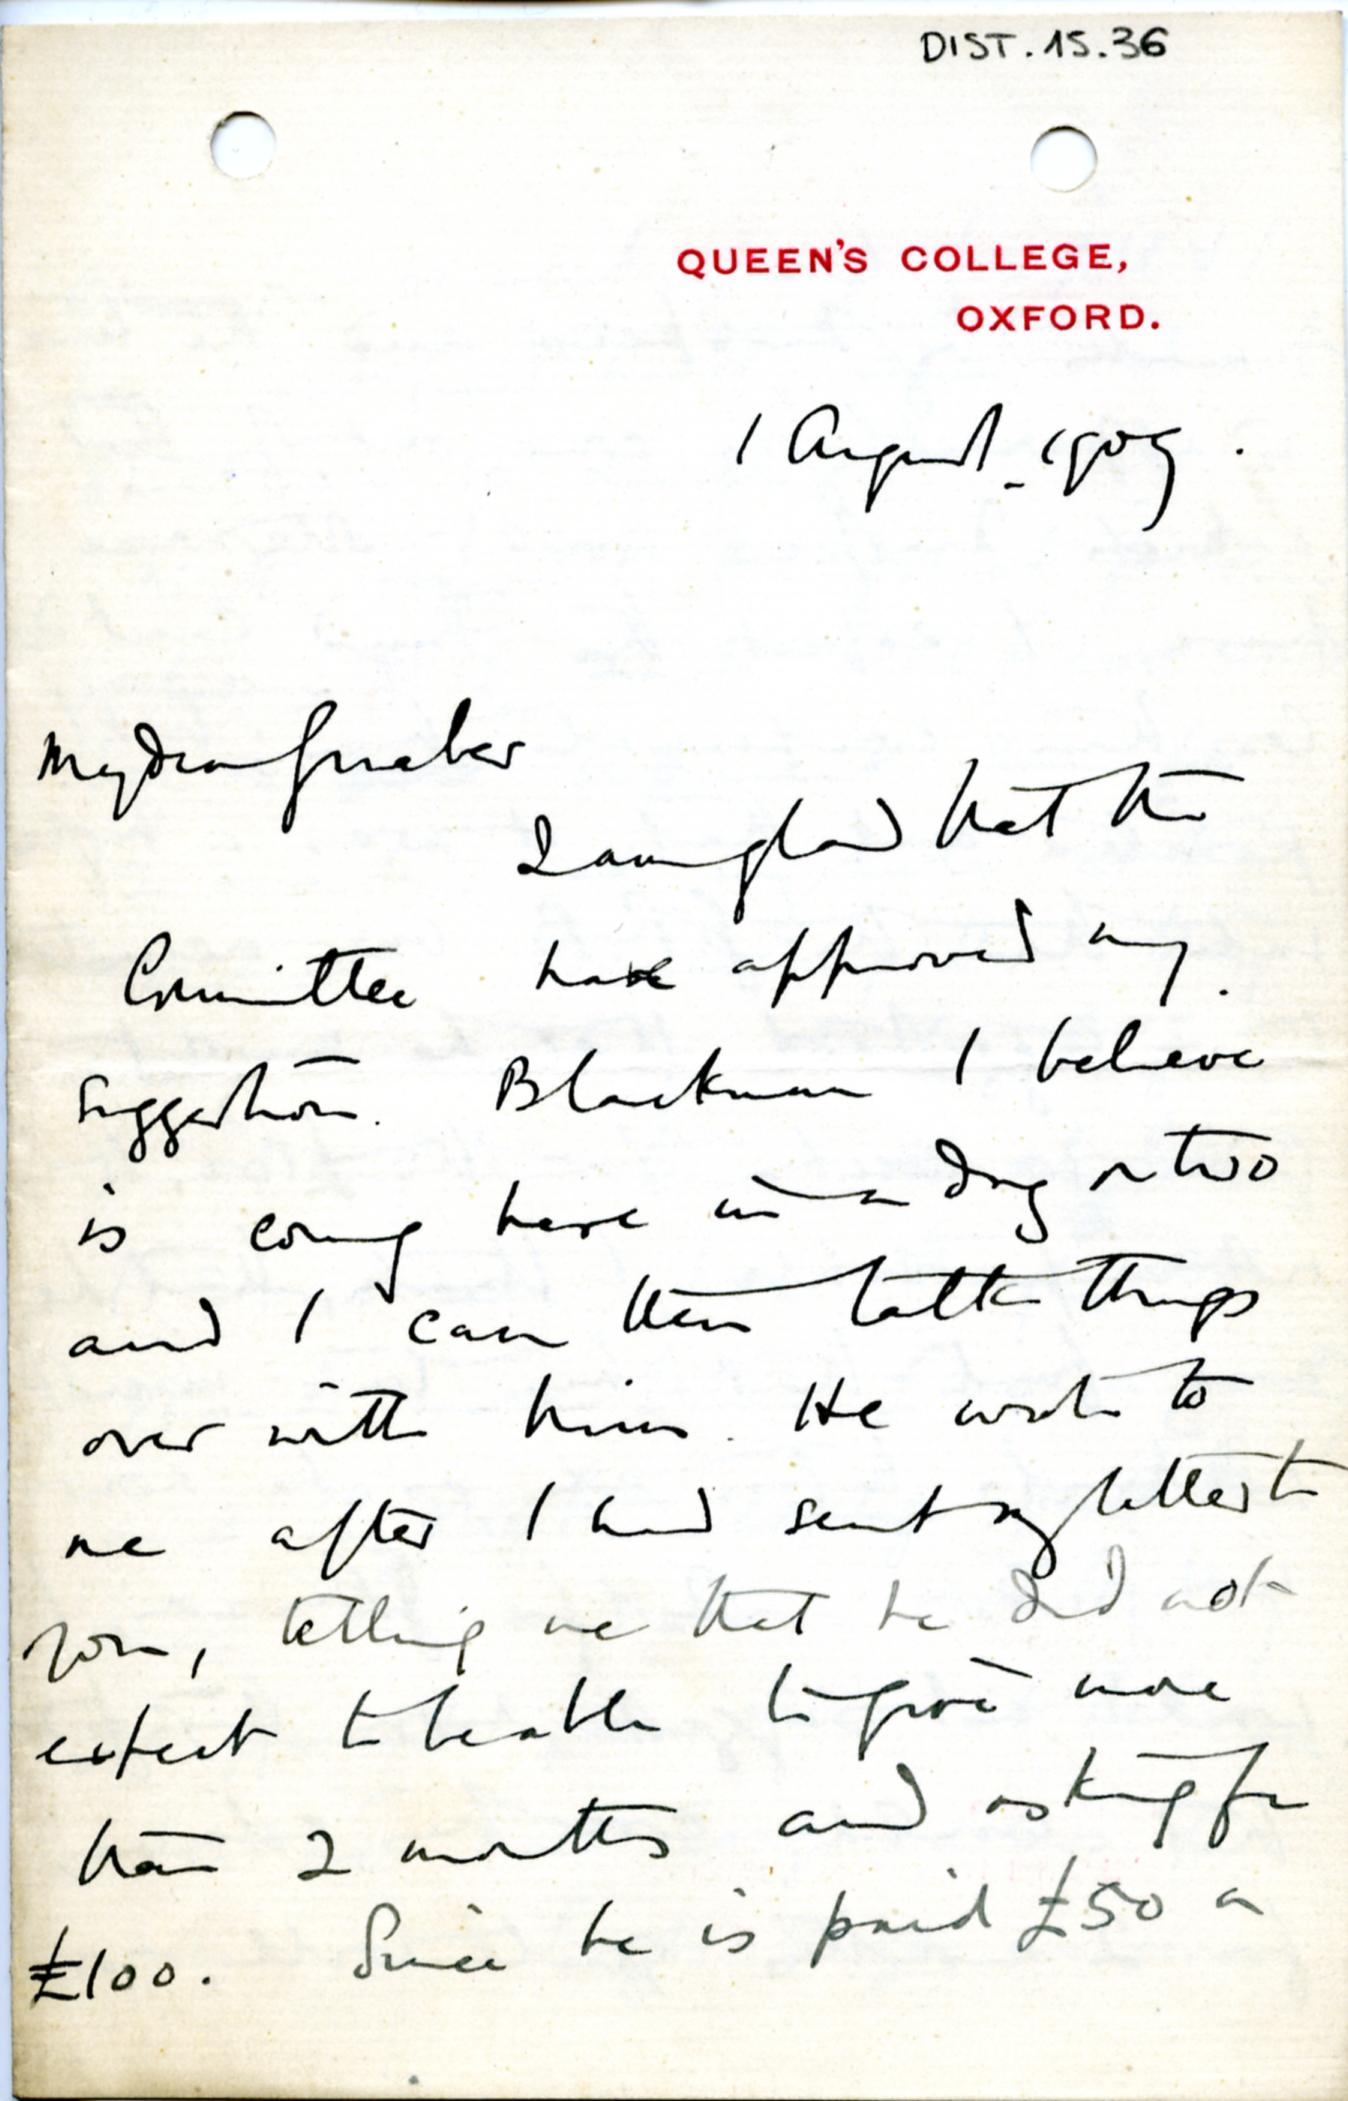 DIST.15.36
QUEEN'S COLLEGE,
OXFORD.
1 August _ 1909.
My dear Grueber
I am glad that the
Committee have approved my
suggestion. Blackman I believe
is coming here in a day or two
and I can then talk things
over with him. He wrote to
me after I had sent my letter to
you, telling me that he did not
expect to be able to give more
than 2 months and asking for
£100. Since he is paid £50 a